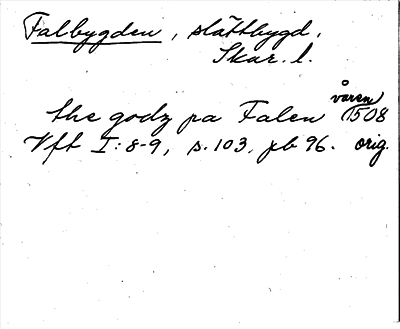 Falbygden, slättbygd.
Skar. l.
the godz pa Falen våren 1508
Vft I:8-9, s. 103, pb 96. orig.